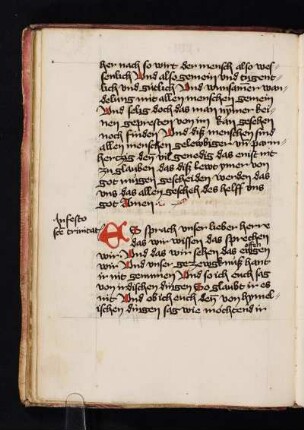 her nach so wirt der mensch also wes-
senlich Vnd also gemein vnd tugent-
lich vnd gütlich Vnd wunsamer wan-
delung mit allen menschen gemein
Vnd selig doch das man nymer kei-
nen gepresten von im kan gesehen
noch finden Vnd diß menschen sind
allen menschen gelewbiger vn parm-
hertzig den vil genedig das ensi mit
zu glauben das diß lewt ymer von
got mügen gescheiden werden das
vns das allen geschech des helff vns
got Amen
In festo
scē trinitat
Es sprach vnser lieber herre
das wir wissen das sprechen
wir Vnd das wir sehen das
wir Vnd vnser gezewgknuß habt
ir nit genumen Vnd so ich euch sag
von irdischen dingen So glaubt ir es
nit Vnd ob ich euch den von hymel-
ischen dingen sag wie möchtend ir